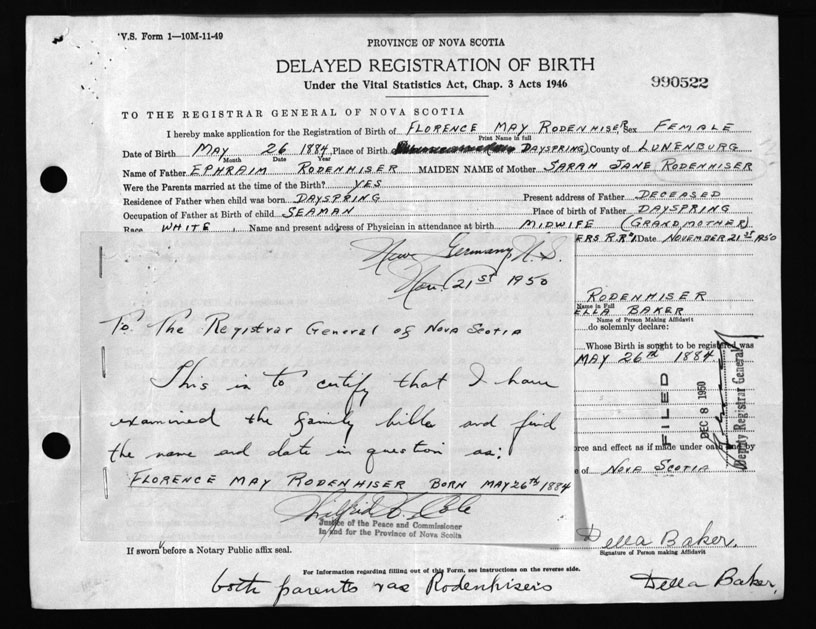 V.S. Form 1—10M-11-49
PROVINCE OF NOVA SCOTIA
DELAYED REGISTRATION OF BIRTH
Under the Vital Statistics Act, Chap. 3 Acts 1946
990522
TO THE REGISTRAR GENERAL OF NOVA SCOTIA
I hereby make application for the Registration of Birth of FLORENCE MAY RODENHISER Sex FEMALE
Print Name in full
Date of Birth MAY 26 1884 Place of Birth DAYSPRING) County of LUNENBURG
Month Date Year
Name of Father EPHRAIM RODENHISER MAIDEN NAME of Mother SARAH JANE RODENHISER
Were the Parents married at the time of the Birth? YES
Residence of Father when child was born DAYSPRING Present address of Father DECEASED
Occupation of Father at Birth of child SEAMAN Place of birth of Father DAYSPRING
Race WHITE Name and present address of Physician in attendance at birth MIDWIFE (GRANDMOTHER)
ERS R.R#1 Date NOVEMBER 21st 1950
New Germany, N.S.
Nov. 21st 1950
To The Registrar General of Nova Scotia
This is to certify that I have
examined the family bible and find
the name and date in question as:
FLORENCE MAY RODENHISER BORN MAY 26th 1884
Justice of the Peace and Commissioner
in and for the Province of Nova Scotia
RODENHISER
Name in Full
ELLA BAKER
Name of Person Making Affidavit
do solemnly declare:
Whose Birth is sought to be registered was
MAY 26th 1884
FILED
DEC 8 1950
Deputy Registrar General
orce and effect as if made under oath and by
e of NOVA SCOTIA
Della Baker.
Signature of Person making Affidavit
If sworn before a Notary Public affix seal.
For Information regarding filling out of this Form, see instructions on the reverse side.
both parents was Rodenhisers
Della Baker.